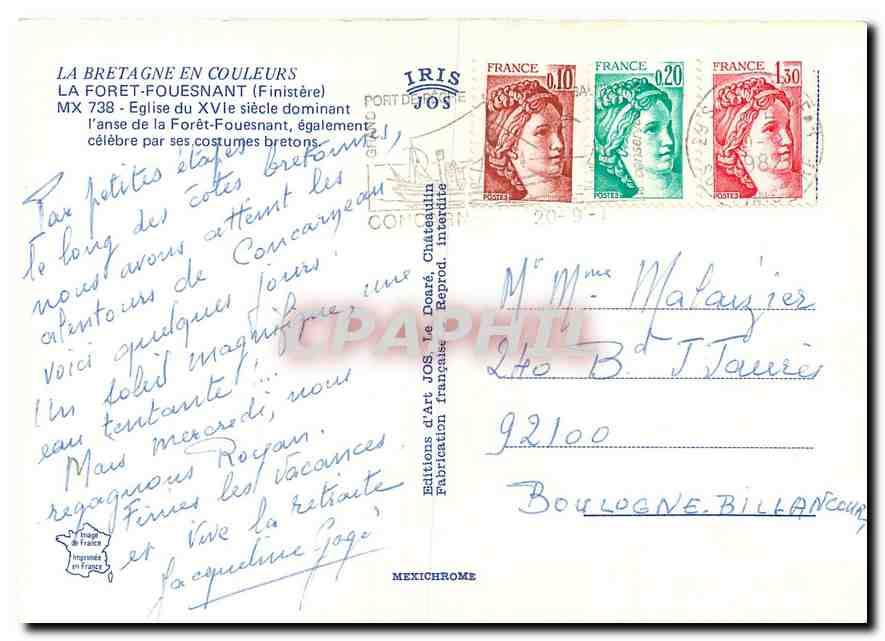 LA BRETAGNE EN COULEURS
LA FORET-FOUESNANT (Finistère)
MX 738 - Eglise du XVIe siècle dominant
l'anse de la Forêt-Fouesnant, également
célèbre par ses costumes bretons.
IRIS
JOS
GRAND PORT DE PÊCHE
CONCARN
20-9-
FRANCE
0.10
POSTES
FRANCE
0.20
POSTES
FRANCE
1.30
POSTES
Par petites étapes
le long des côtes bretonnes,
nous avons atteint les
alentours de Concarneau
voici quelques jours.
Un soleil magnifique, une
eau tentante!...
Mais mercredi, nous
regagnons Royan.
Finies les vacances
et vive la retraite
Jacqueline
Editions d'Art JOS, Le Doaré, Châteaulin
Fabrication française - Reprod. interdite
Mr Mme Malaizier
240 Bd J Jaurès
92100
BOULOGNE-BILLANCOURT
CPAPHIL
Image
de France
Imprimée
en France
MEXICHROME